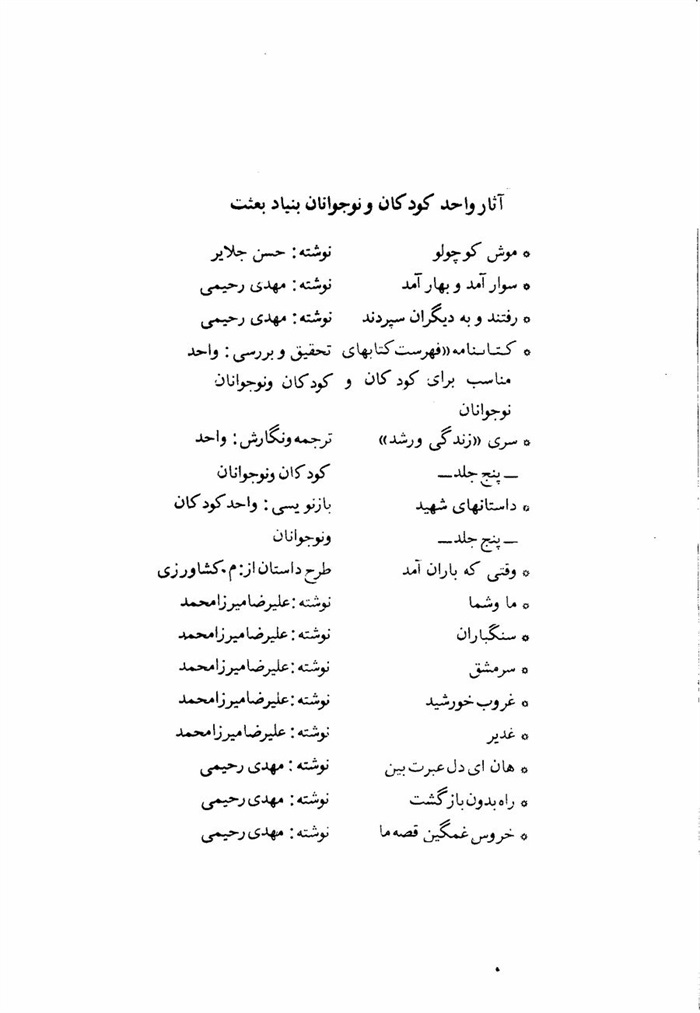 آثار واحد کودکان و نوجوانان بنیاد بعثت
* موش کوچولو نوشته: حسن جلایر
* سوار آمد و بهار آمد نوشته: مهدی رحیمی
* رفتند و به دیگران سپردند نوشته: مهدی رحیمی
* کتابنامه «فهرست کتابهای تحقیق و بررسی: واحد
مناسب برای کودکان و کودکان ونوجوانان
نوجوانان
* سری «زندگی ورشد» ترجمه ونگارش: واحد
ــ پنج جلد ــ کودکان ونوجوانان
* داستانهای شهید بازنویسی: واحد کودکان
ــ پنج جلد ــ ونوجوانان
* وقتی که باران آمد طرح داستان از: م. کشاورزی
* ما وشما نوشته: علیرضا میرزامحمد
* سنگباران نوشته: علیرضا میرزامحمد
* سرمشق نوشته: علیرضا میرزامحمد
* غروب خورشید نوشته: علیرضا میرزامحمد
* غدیر نوشته: علیرضا میرزامحمد
* هان ای دل عبرت بین نوشته: مهدی رحیمی
* راه بدون بازگشت نوشته: مهدی رحیمی
* خروس غمگین قصه ما نوشته: مهدی رحیمی